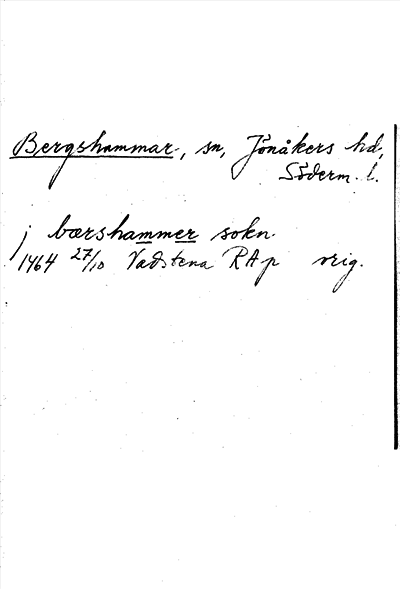 Bergshammar, sn, Jönåkers hd,
Söderm. l.
j bærshammer sokn.
1464 27/10 Vadstena RAp orig.